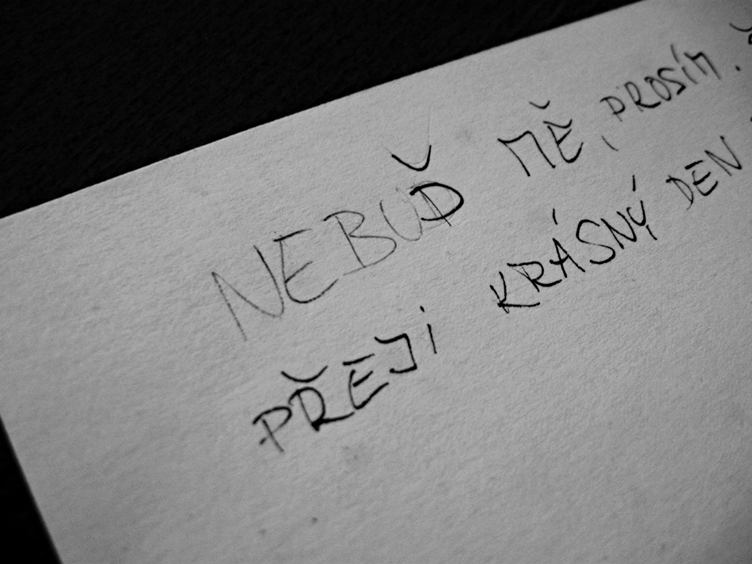 NEBUĎ MĚ, PROSÍM.
PŘEJI KRÁSNÝ DEN